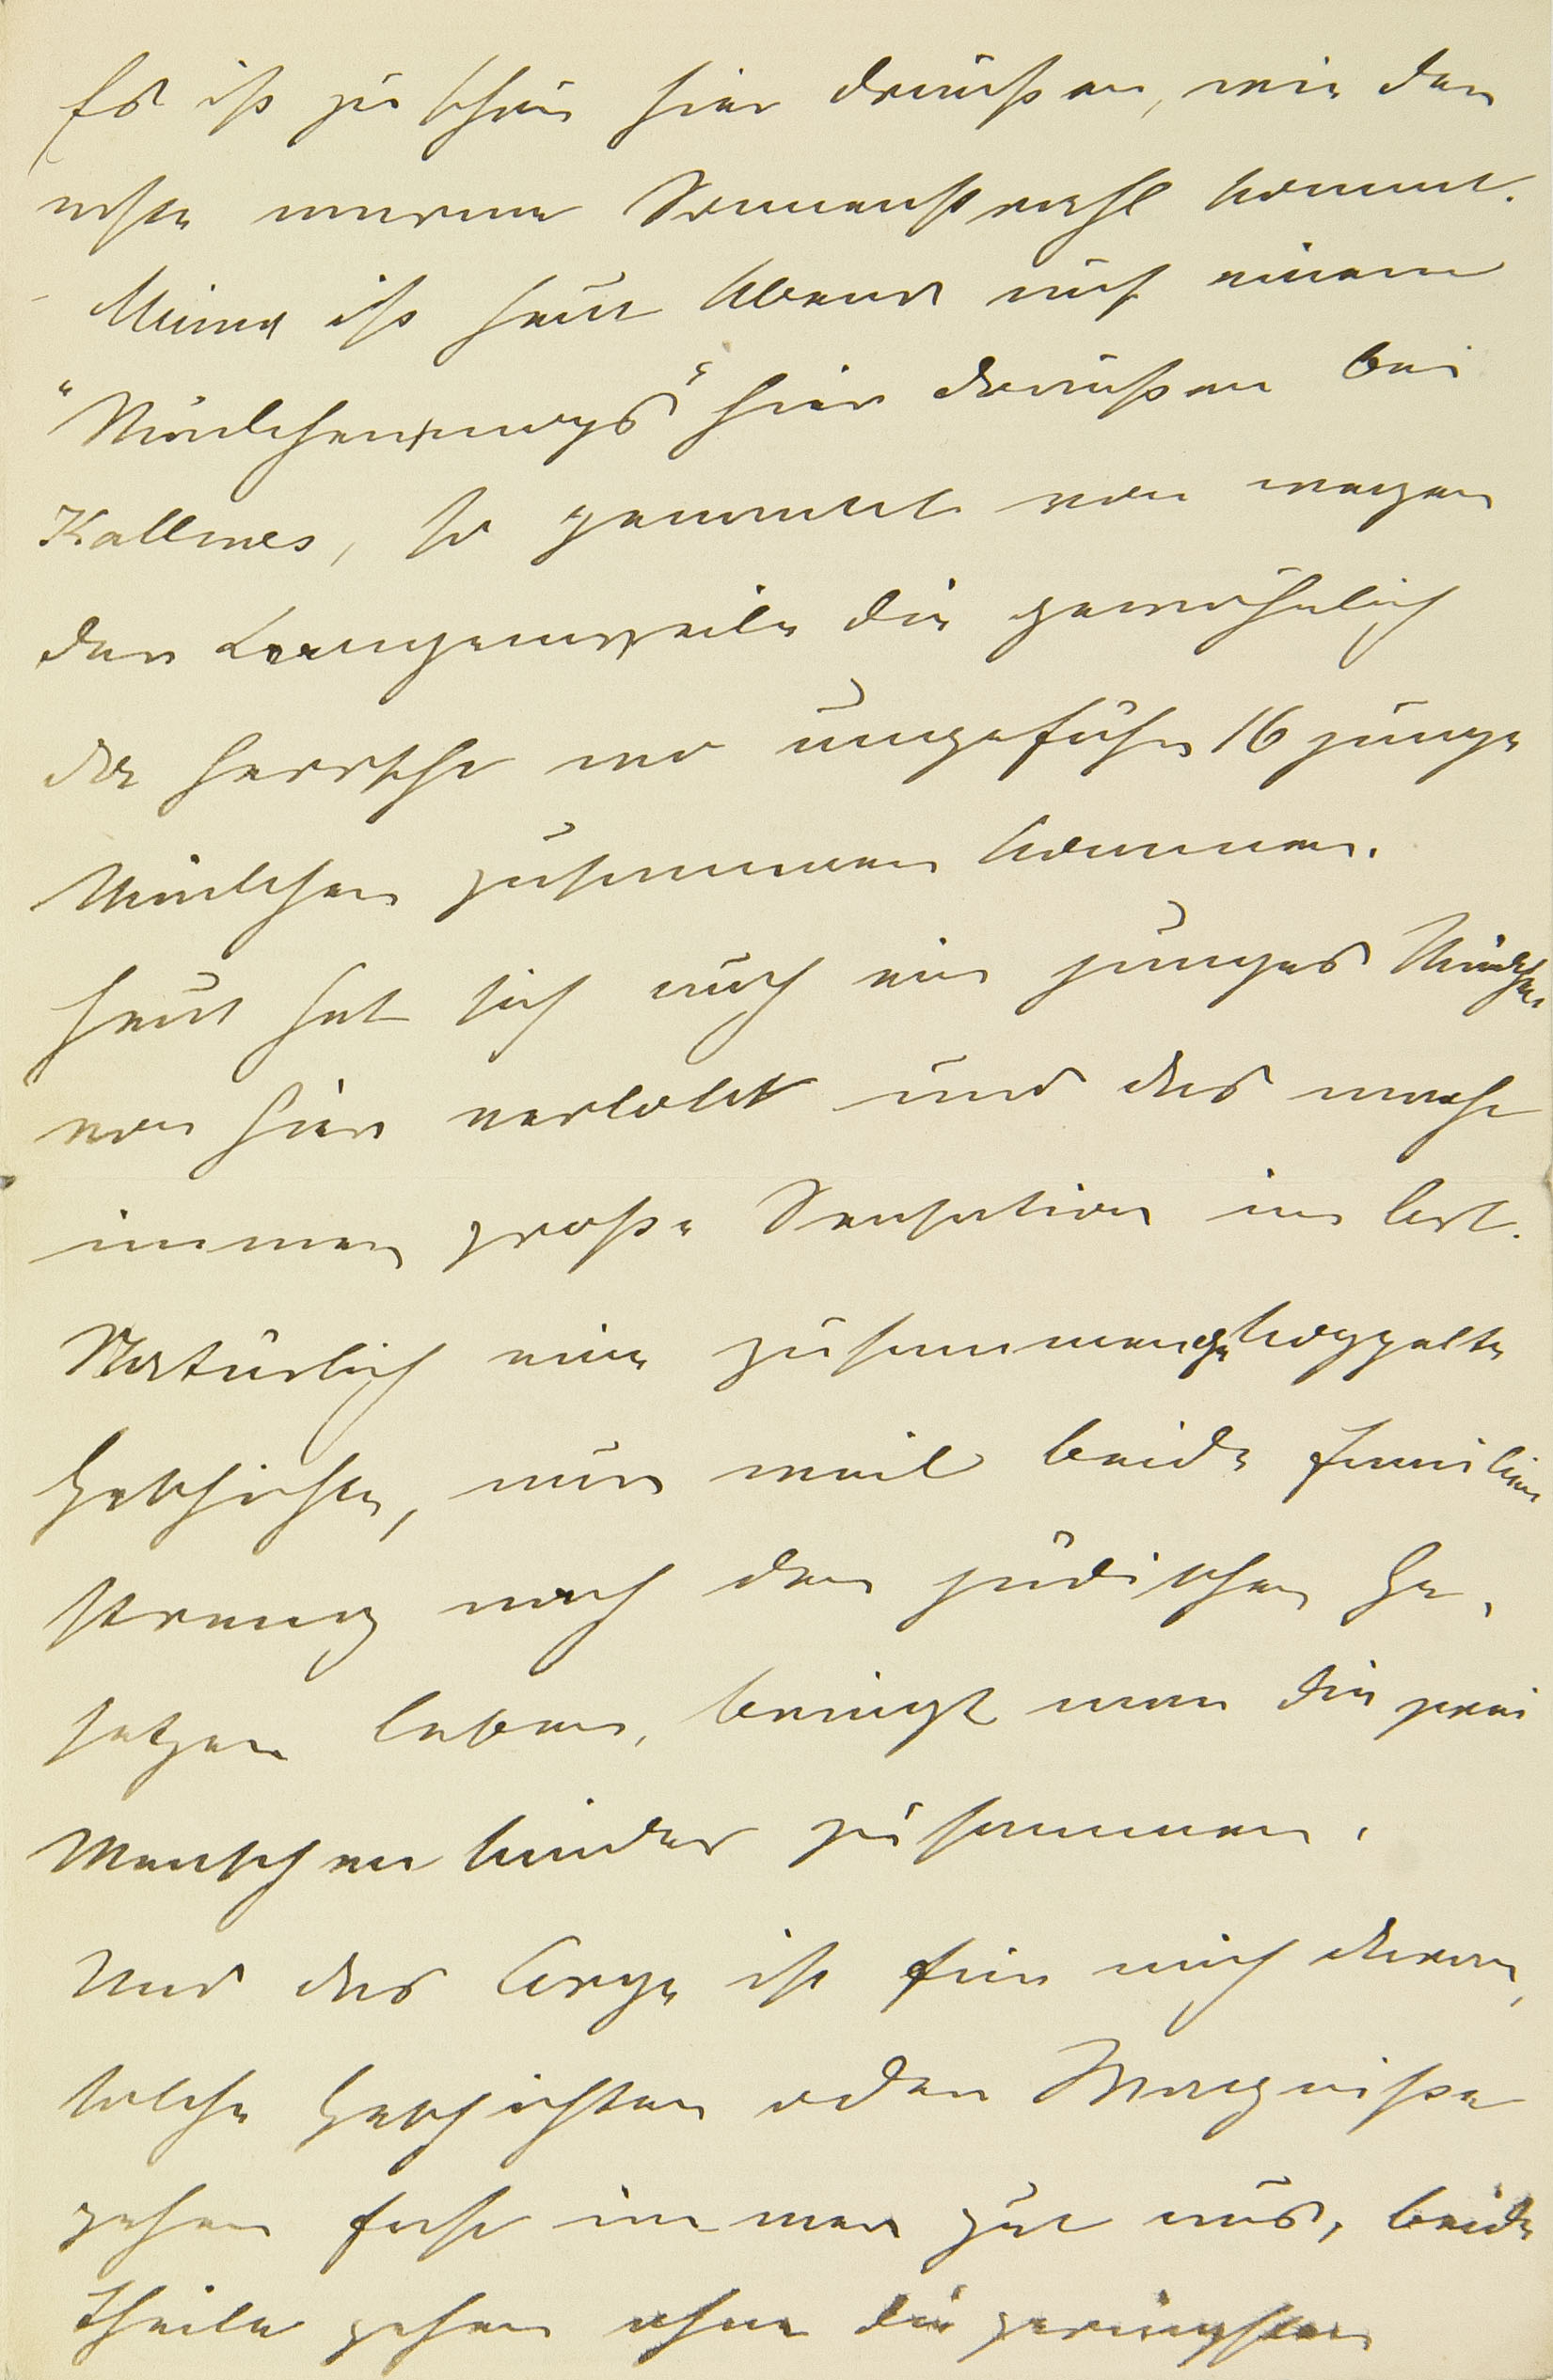 Es ist zu schön hier draußen, wie der
erste warme Sonnenstrahl kommt.
Mima ist heut Abend auf einem
"Mädchenmops" hier draußen bei
Kallmes, so genannt von wegen
der Langenweile die gewöhnlich
da herrscht wo ungefähr 16 junge
Mädchen zusammen kommen.
Heut hat sich auch ein junges Mädchen
von hier verlobt und das macht
immer große Sensation im Ort.
Natürlich eine zusammengekoppelte
Geschichte, nur weil beide Familien
streng nach den jüdischen Ge-
setzen leben, bringt man die zwei
Menschenkinder zusammen.
Und das Arge ist für mich daran,
solche Geschichten oder Wagnisse
gehen fast immer gut aus, beide
Theile gehen ohne die geringsten